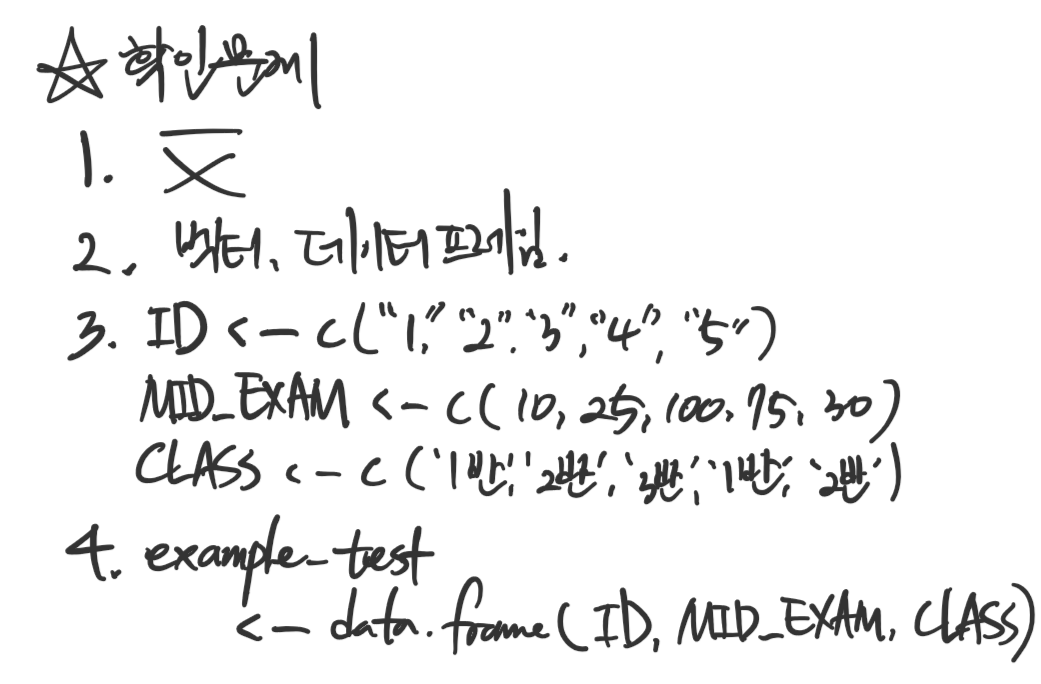 ☆ 확인문제
1. X
2. 벡터, 데이터프레임.
3. ID <- c("1", "2", "3", "4", "5")
MID_EXAM <- c(10, 25, 100, 75, 30)
CLASS <- c('1반', '2반', '3반', '1반', '2반')
4. example_test
<- data.frame(ID, MID_EXAM, CLASS)